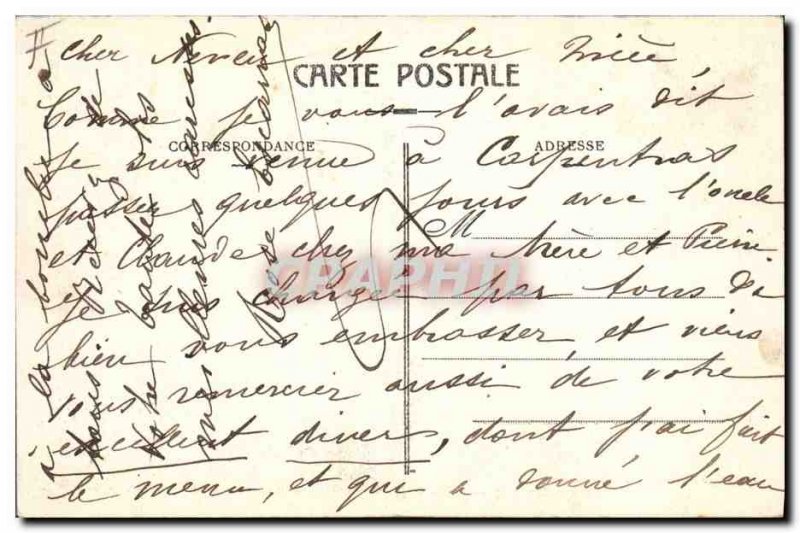 cher Neveu et chère Nièce,
CARTE POSTALE
Comme je vous l'avais dit
CORRESPONDANCE
ADRESSE
je suis venue à Carpentras
passer quelques jours avec l'oncle
M
et Claude chez ma Mère et Pierre
je suis chargée par tous de
bien vous embrasser et viens
vous remercier aussi de votre
excellent diner, dont j'ai fait
le menu, et qui a donné l'eau
à la bouche à
tous. Recevez de
votre tante les
meilleures caresses
Rose